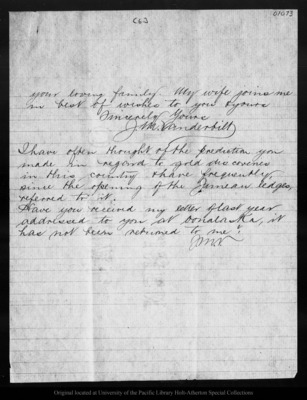 (63)
01073
your loving family. My wife joins me
in best of wishes to you & yours
Sincerely Yours
J M Vanderbilt
I have often thought of the prediction you
made in regard to gold discoveries
in this country & have frequently,
since the opening of the Juneau ledges,
referred to it.
Have you received my letter of last year
addressed to you at Oonalaska, it
has not been returned to me?
JMV
Original located at University of the Pacific Library Holt-Atherton Special Collections